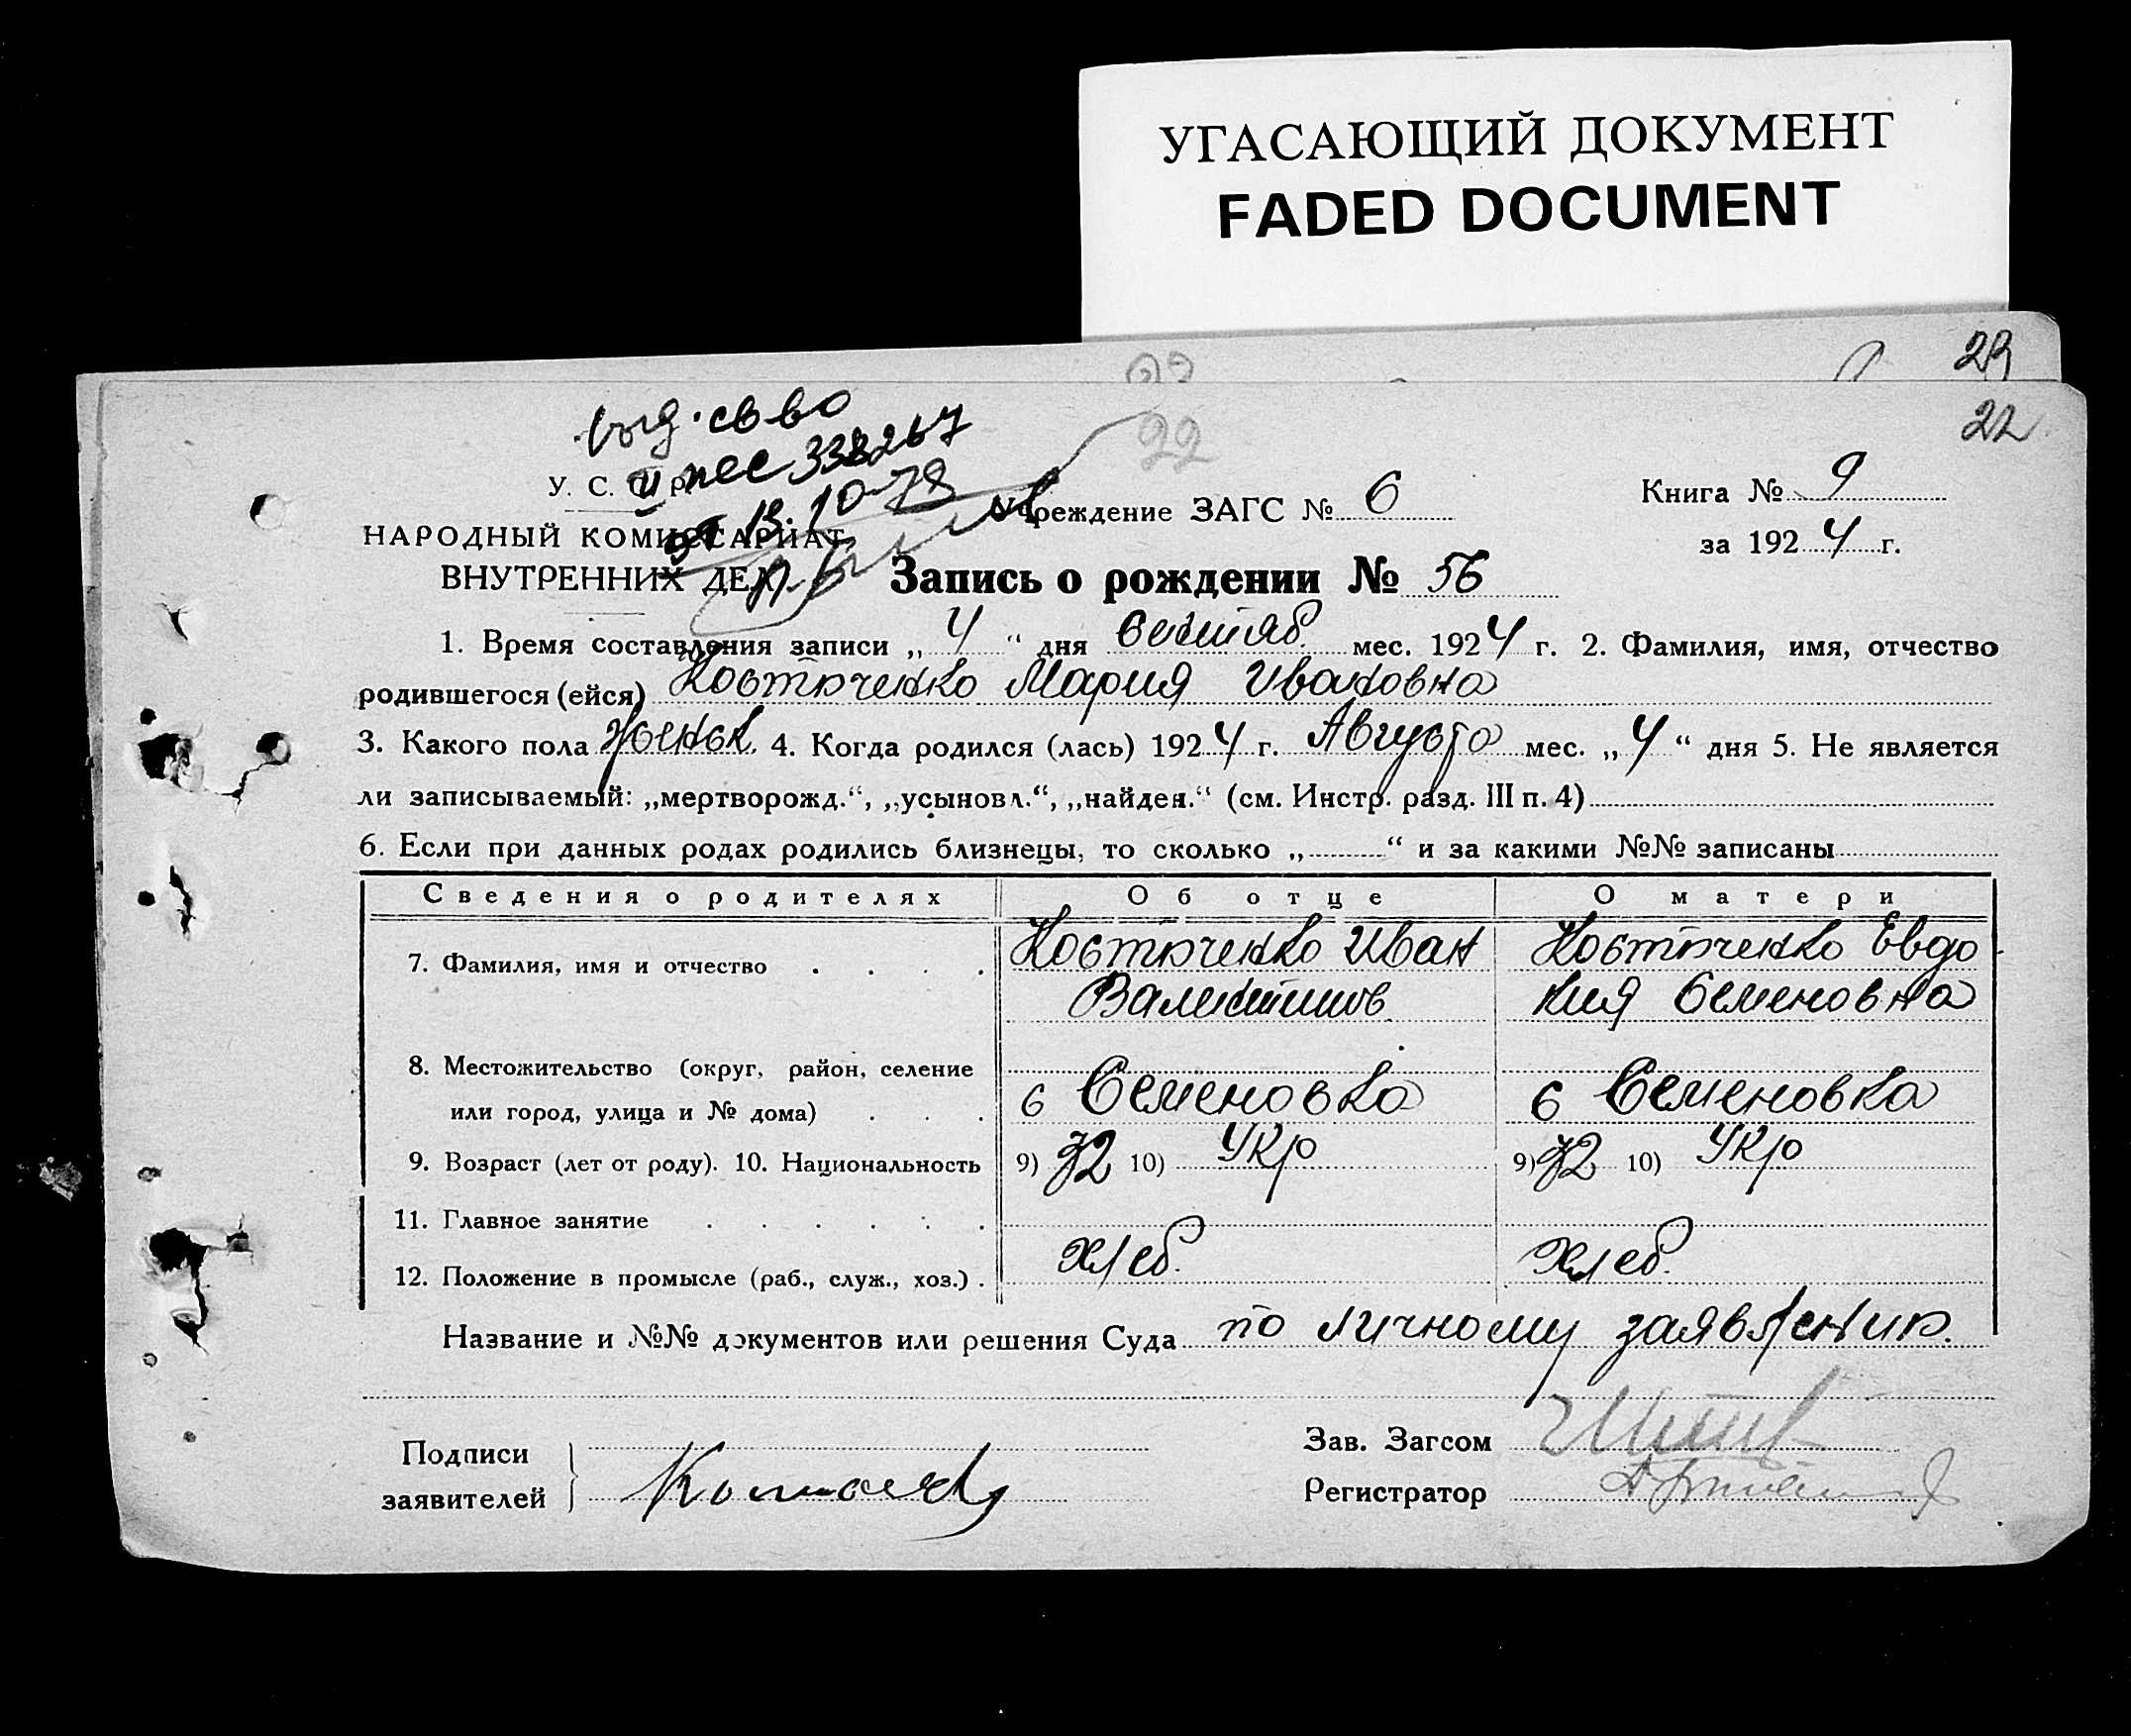 УГАСАЮЩИЙ ДОКУМЕНТ
FADED DOCUMENT
29
22
22
22
выд. св во
II пес 338267
от 13.10-78
У. С. С. Р.
НАРОДНЫЙ КОМИССАРИАТ
ВНУТРЕННИХ ДЕЛ
Учреждение ЗАГС № 6
Книга № 9
за 1924 г.
Запись о рождении № 56
1. Время составления записи „ 4 “ дня Сентяб. мес. 1924 г. 2. Фамилия, имя, отчество
родившегося (ейся) Костюченко Мария Ивановна
3. Какого пола Женск. 4. Когда родился (лась) 1924 г. Августа мес. „ 4 “ дня 5. Не является
ли записываемый: „мертворожд.“, „усыновл.“, „найден.“ (см. Инстр. разд. III п. 4)
6. Если при данных родах родились близнецы, то сколько „ “ и за какими №№ записаны
Сведения о родителях Об отце О матери
7. Фамилия, имя и отчество Костюченко Иван Костюченко Евдо
Валентинов кия Семеновна
8. Местожительство (округ, район, селение
или город, улица и № дома) с Семеновка с Семеновка
9. Возраст (лет от роду). 10. Национальность 9) 32 10) Укр 9) 32 10) Укр
11. Главное занятие
12. Положение в промысле (раб., служ., хоз.) Хлеб. Хлеб.
Название и №№ документов или решения Суда по личному заявлению.
Подписи
заявителей
Зав. Загсом
Регистратор